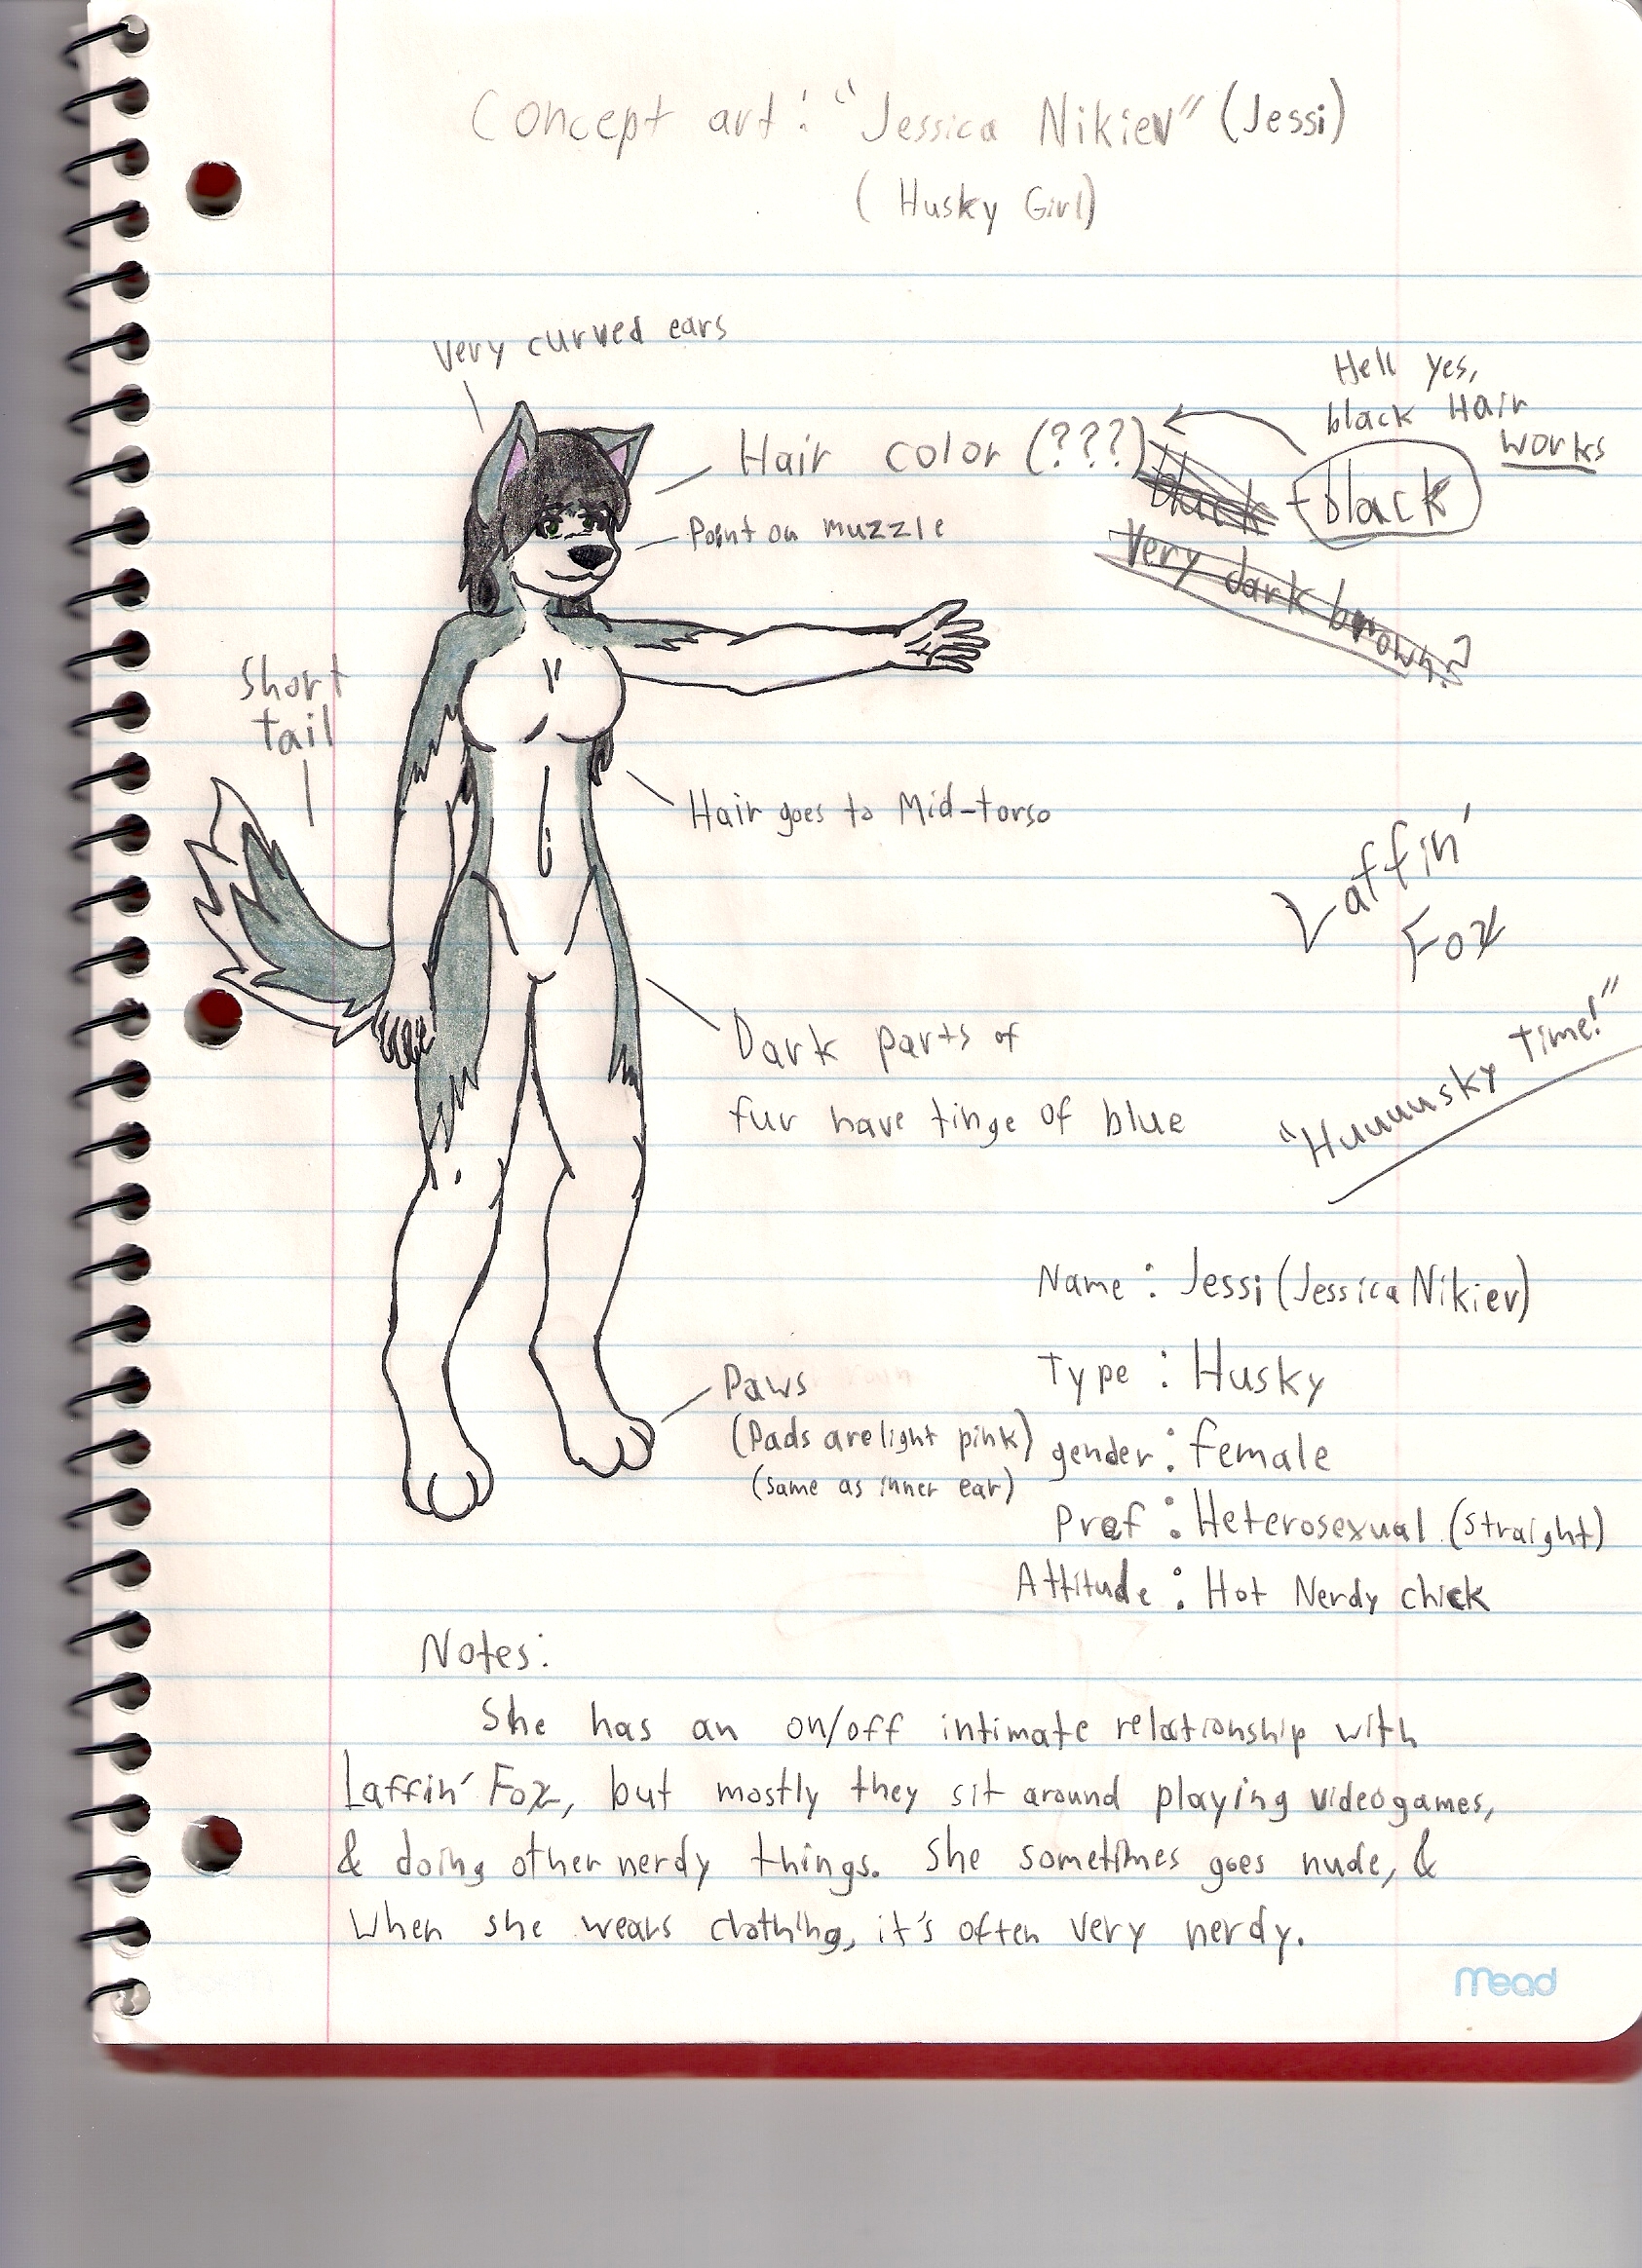 Concept art: "Jessica Nikiev" (Jessi)
(Husky Girl)
Very curved ears
Hell yes,
black Hair
works
Hair color (???)
black - black
Very dark brown?
Point on muzzle
Short
tail
Hair goes to Mid-torso
Laffin'
Fox
Dark parts of
fur have tinge of blue
"Huuuusky Time!"
Name: Jessi (Jessica Nikiev)
Type: Husky
Paws
(Pads are light pink)
(same as inner ear)
gender: female
Pref: Heterosexual (straight)
Attitude: Hot Nerdy chick
Notes:
She has an on/off intimate relationship with
Laffin' Fox, but mostly they sit around playing videogames,
& doing other nerdy things. She sometimes goes nude, &
when she wears clothing, it's often very nerdy.
Mead